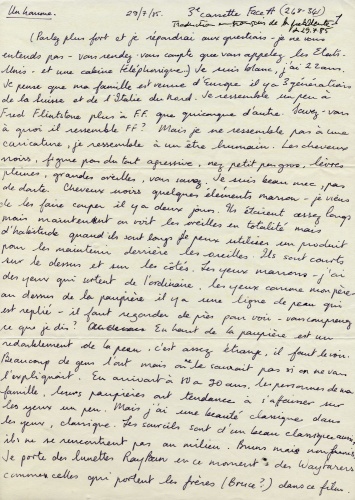 Un homme. 29/7/85. 3e cassette Face A (248-361)
Traduction de la précédente
29.7.85
(Parlez plus fort et je répondrai aux questions - je ne vous
entends pas - vous rendez-vous compte que vous appelez les Etats-
Unis - et une cabine téléphonique.) Je suis blanc, j'ai 22 ans.
Je pense que ma famille est venue d'Europe il y a 3 générations
de la Suisse et de l'Italie du Nord. Je ressemble un peu à
Fred Flintstone plus à F.F. que quiconque d'autre. Savez-vous
à quoi il ressemble FF? Mais je ne ressemble pas à une
caricature, je ressemble à un être humain. Les cheveux
noirs, figure pas du tout agressive, nez petit pas gros, lèvres
pleines, grandes oreilles, vous savez. Je suis beau mec, pas
de doute. Cheveux noirs quelques éléments marron - je viens
de les faire couper il y a deux jours. Ils étaient assez longs
mais maintenant on voit les oreilles en totalité mais
d'habitude quand ils sont longs je peux utiliser un produit
pour les maintenir derrière les oreilles. Ils sont courts
sur le dessus et sur les côtés. Les yeux marrons - j'ai
des yeux qui sortent de l'ordinaire. les yeux comme mon père
au dessus de la paupière il y a une ligne de peau qui
est repliée - il faut regarder de près pour voir - vous comprenez
ce que je dis? En haut de la paupière est un
redoublement de la peau, c'est assez étrange, il faut le voir.
Beaucoup de gens l'ont mais on le savait pas si on ne vous
l'expliquait. En arrivant à 60 a 70 ans. les personnes de ma
famille, leurs paupières ont tendance à s'affaisser sur
les yeux un peu. Mais j'ai une beauté classique dans
les yeux, classique. Les sourcils sont d'un beau classique aussi,
ils ne se rencontrent pas au milieu. Bruns mais non
Je porte des lunettes RayBan en ce moment des Wayfarers
comme celles qui portent les frères (Bruce?) dans ce film.